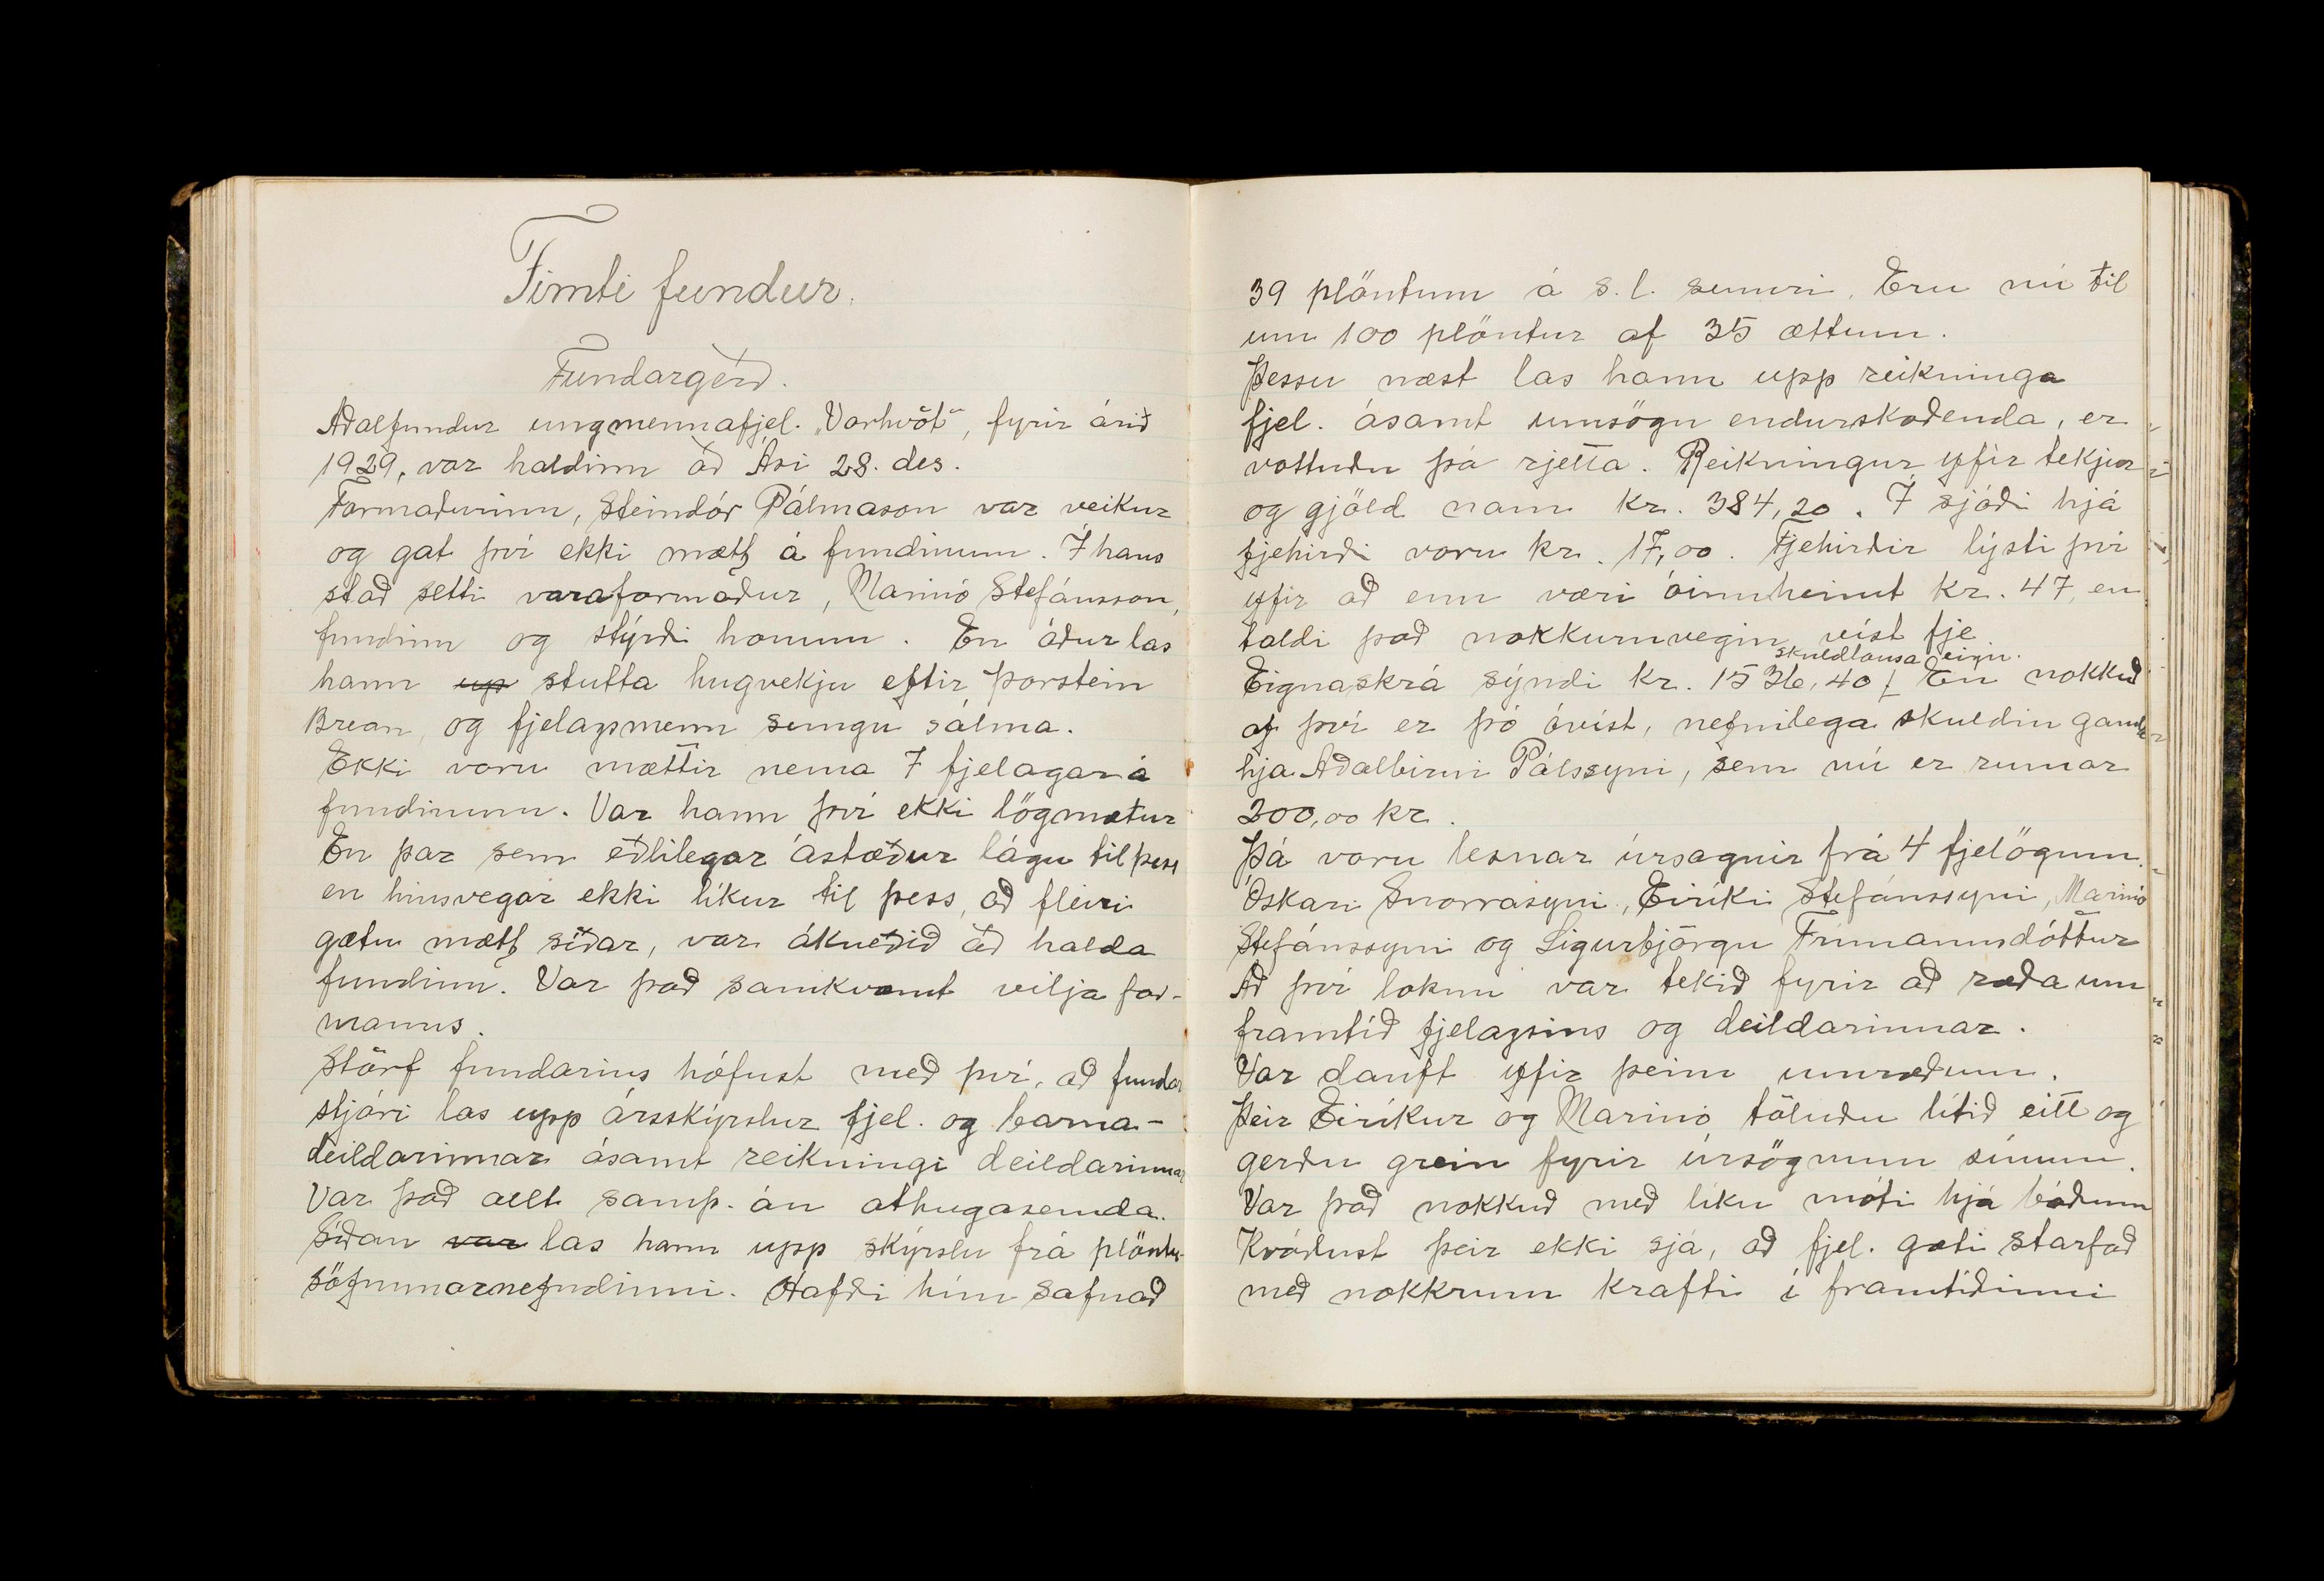 Fimti fundur.
Fundargerð.
Aðalfundur ungmennafjel. „Vorhvöt“, fyrir árið
1929, var haldinn að Ási 28. des.
Formaðurinn, Steindór Pálmason var veikur
og gat því ekki mætt á fundinum. Í hans
stað setti varaformaður, Marinó Stefánsson,
fundinn og stýrði honum. En áður las
hann up stutta hugvekju eftir Þorstein
Brean, og fjelagsmenn sungu sálma.
Ekki voru mættir nema 7 fjelagar á
fundinum. Var hann því ekki lögmætur
En þar sem eðlilegar ástæður lágu til þess
en hinsvegar ekki líkur til þess, að fleiri
gætu mætt síðar, var ákveðið að halda
fundinn. Var það samkvæmt vilja for-
manns.
Störf fundarins hófust með því, að fundar
stjóri las upp ársskýrslur fjel. og barna-
deildarinnar ásamt reikningi deildarinnar
Var það allt samþ. án athugasemda.
Síðan var las hann upp skýrslu frá plöntu-
söfnunarnefndinni. Hafði hún safnað
39 plöntum á s.l. sumri. Eru nú til
um 100 plöntur af 35 ættum.
Þessu næst las hann upp reikninga
fjel. ásamt umsögn endurskoðenda, er
vottuðu þá rjetta. Reikningur yfir tekjur
og gjöld nam kr. 384,20. Í sjóði hjá
fjehirði voru kr. 17,00. Fjehirðir lýsti því
yfir að enn væri óinnheimt kr. 47, en
taldi það nokkurnvegin víst fje.
skuldlausa eign.
Eignaskrá sýndi kr. 1536,40 / En nokkuð
af því er þó óvíst, nefnilega skuldin gamla
hja Aðalbirni Pálssyni, sem nú er rumar
200,00 kr.
Þá voru lesnar úrsagnir frá 4 fjelögum.
Óskari Snorrasyni, Eiríki Stefánssyni, Marinó
Stefánssyni og Sigurbjörgu Frímannsdóttur
Að því loknu var tekið fyrir að ræða um
framtíð fjelagsins og deildarinnar.
Var dauft yfir þeim umræðum.
Þeir Eiríkur og Marinó töluðu lítið eitt og
gerðu grein fyrir úrsögnum sínum.
Var það nokkuð með líku móti hjá báðum
Kváðust þeir ekki sjá, að fjel. gæti starfað
með nokkrum krafti í framtíðinni